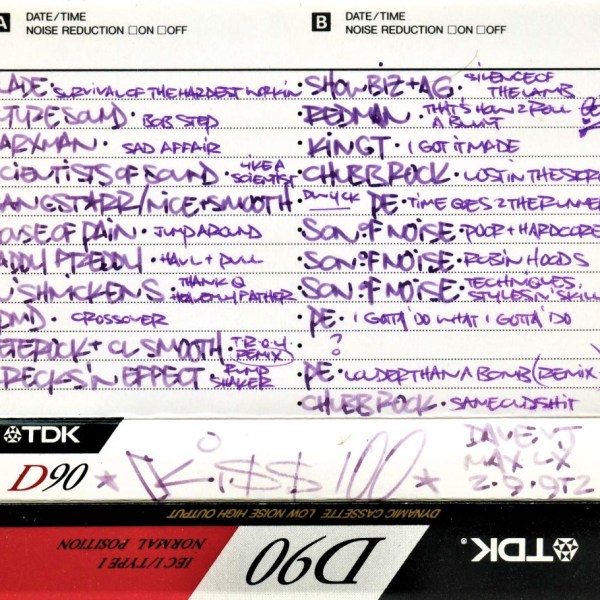 A DATE/TIME
NOISE REDUCTION □ON □OFF
LADE · SURVIVAL OF THE HARDEST WORKIN
TYPE SOUND · BOB STEP
ARXMAN · SAD AFFAIR
CIENTISTS OF SOUND · LIKE A SCIENTIST
ANGSTARR/NICE+SMOOTH · DWYCK
OUSE OF PAIN · JUMP AROUND
ADDY FREDDY · HAUL + PULL
U SHNICKENS · THANK Q HEAVENLY FATHER
PMD · CROSSOVER
ETEROCK + CL SMOOTH · T.R.O.Y. REMIX
RECKS'N EFFECT · RUMP SHAKER
B DATE/TIME
NOISE REDUCTION □ON □OFF
· SHOWBIZ + AG · SILENCE OF THE LAMB
· REDMAN · THAT'S HOW 2 ROLL A BLUNT
· KING T · I GOT IT MADE
· CHUBB ROCK · LOST IN THE STOR
PE · TIME GOES 2 THE RUNNER
· SON OF NOISE · POOR + HARDCORE
· SON OF NOISE · ROBIN HOODS
· SON OF NOISE · TECHNIQUES, STYLES N' SKILL
· PE · I GOTTA' DO WHAT I GOTTA' DO
· ?
· PE · LOUDER THAN A BOMB (REMIX
· CHUBB ROCK · SAME OLD SHIT
TDK
D90 * KISS 100 *
DAVE VJ
MAX LX
2·9·92
DYNAMIC CASSETTE LOW NOISE HIGH OUTPUT
IEC I/TYPE I
NORMAL POSITION
D90
TDK®